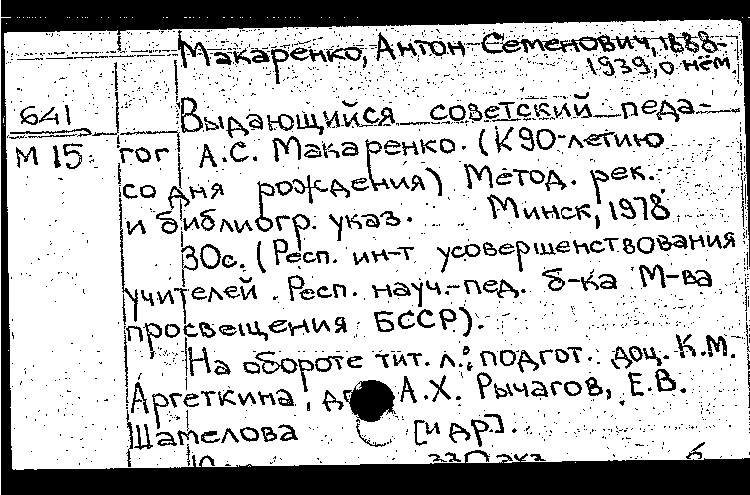 Макаренко, Антон Семенович, 1888-
1939, о нём
641
Выдающийся советский педа-
М 15 гог А.С. Макаренко. (К 90-летию
со дня рождения) Метод. рек.
и библиогр. указ. Минск, 1978
30с. (Респ. ин-т усовершенствования
учителей. Респ. науч.-пед. б-ка М-ва
просвещения БССР).
На обороте тит. л.: подгот. доц. К.М.
Аргеткина, А.Х. Рычагов, Е.В.
Шателова [и др].